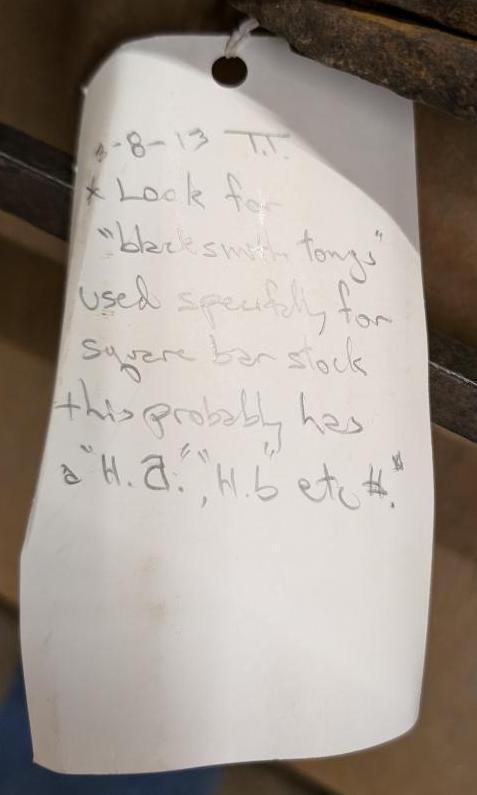 -8-13 T.T.
x Look for
"blacksmith tongs"
used specifically for
square bar stock
this probably has
a "H.a.", "H.b" etc #."